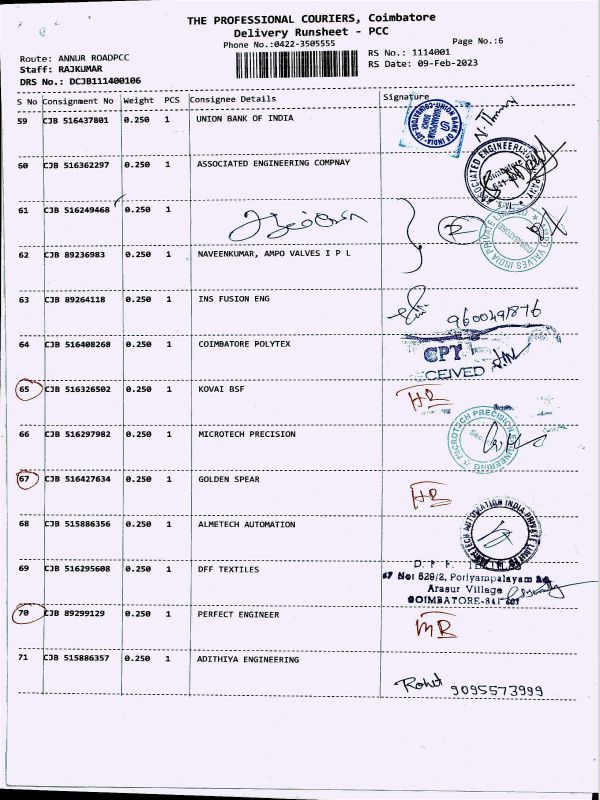 THE PROFESSIONAL COURIERS, Coimbatore
Delivery Runsheet - PCC
Phone No.:0422-3505555 Page No.:6
Route: ANNUR ROADPCC RS No.: 1114001
Staff: RAJKUMAR RS Date: 09-Feb-2023
DRS No.: DCJB111400106
S No Consignment No Weight PCS Consignee Details Signature
59 CJB 516437801 0.250 1 UNION BANK OF INDIA
60 CJB 516362297 0.250 1 ASSOCIATED ENGINEERING COMPNAY
61 CJB 516249468 0.250 1
62 CJB 89236983 0.250 1 NAVEENKUMAR, AMPO VALVES I P L
63 CJB 89264118 0.250 1 INS FUSION ENG 9600491876
64 CJB 516408268 0.250 1 COIMBATORE POLYTEX CPT
CEIVED
65 CJB 516326502 0.250 1 KOVAI BSF HR
66 CJB 516297982 0.250 1 MICROTECH PRECISION MICROTECH PRECISION ENGINEERING
67 CJB 516427634 0.250 1 GOLDEN SPEAR HR
68 CJB 515886356 0.250 1 ALMETECH AUTOMATION
69 CJB 516295608 0.250 1 DFF TEXTILES
No: 629/2, Poriyampalayam
Arasur Village
COIMBATORE-641
70 CJB 89299129 0.250 1 PERFECT ENGINEER MR
71 CJB 515886357 0.250 1 ADITHIYA ENGINEERING
Rohit 9095573999